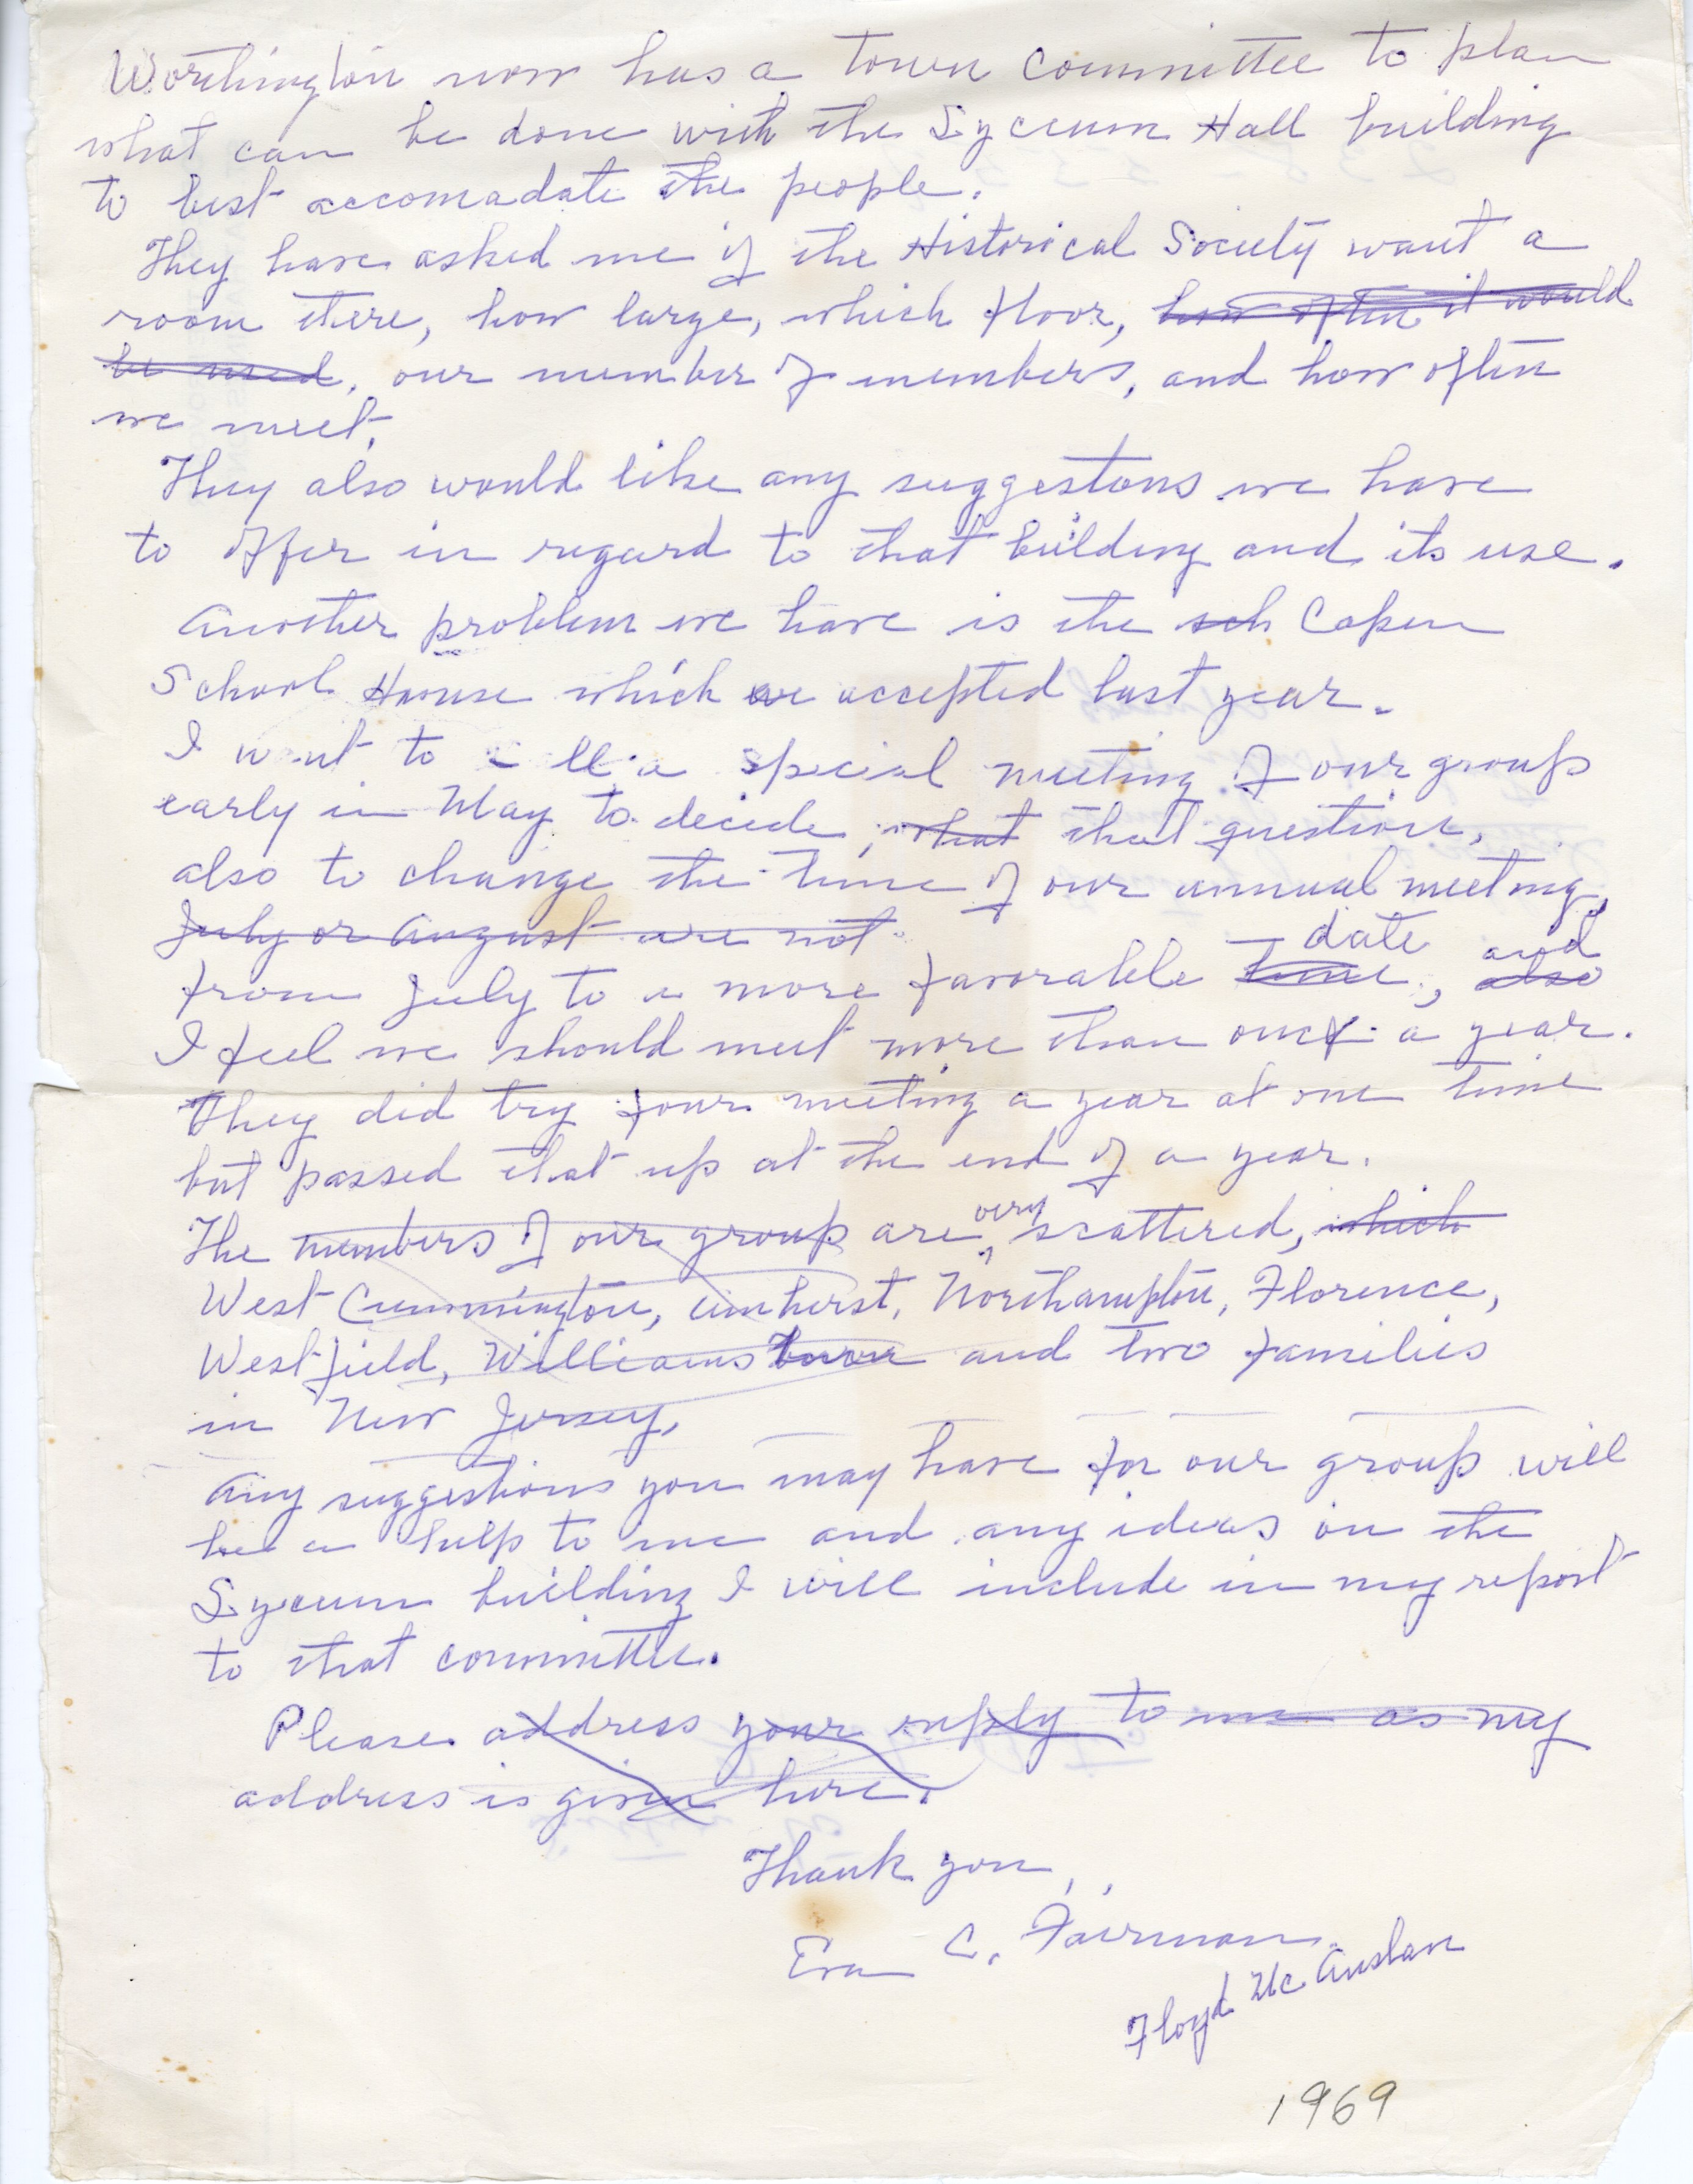 Worthington now has a town committee to plan
what can be done with the Lyceum Hall building
to best accomadate the people.
They have asked me if the Historical Society want a
room there, how large, which floor, how often it would
be used, our number of members, and how often
we meet.
They also would like any suggestons we have
to offer in regard to that building and its use.
Another problem we have is the sch Capen
School House which we accepted last year.
I want to call a special meeting of our group
early in May to decide, what that question,
also to change the time of our annual meeting,
July or August are not
date and
from July to a more favorable time, also
I feel we should meet more than once a year.
They did try four meeting a year at one time
but passed that up at the end of a year.
The members of our group are very scattered, which
West Cummington, Amherst, Northampton, Florence,
Westfield, Williamstown and two families
in New Jersey.
Any suggestions you may have for our group will
be a help to me and any ideas on the
Lyceum building I will include in my report
to that committee.
Please address your reply to me as my
address is given here.
Thank you,
Eva C. Fairman
Floyd Mc Auslan
1969